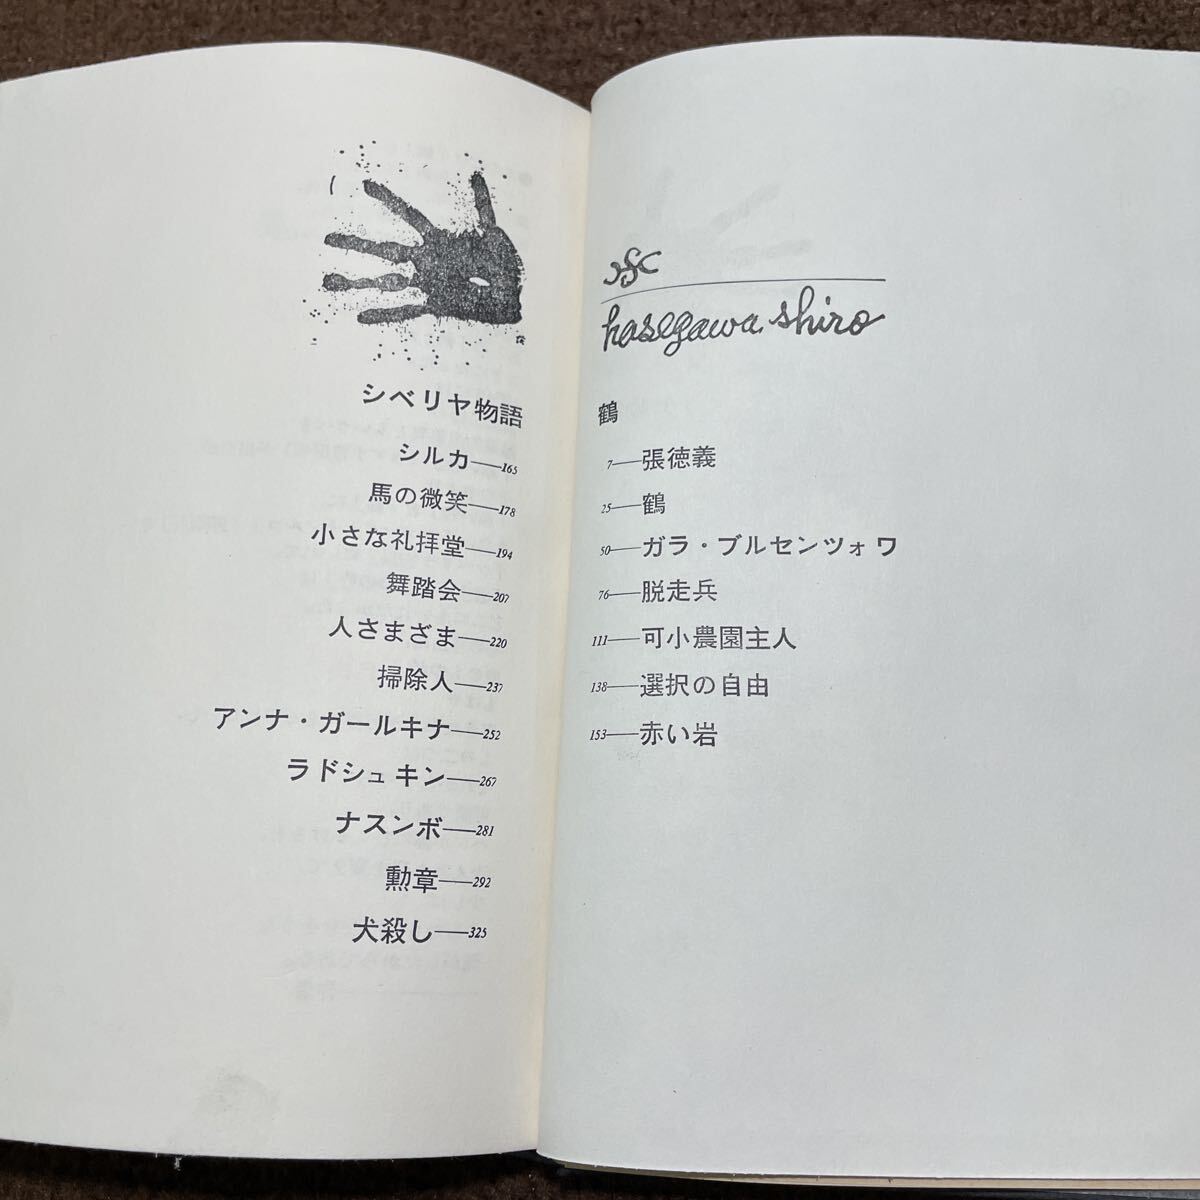 シベリヤ物語
シルカ——165
馬の微笑——178
小さな礼拝堂——194
舞踏会——207
人さまざま——220
掃除人——237
アンナ・ガールキナ——252
ラドシュキン——267
ナスンボ——281
勲章——292
犬殺し——325
hasegawa shiro
鶴
7——張徳義
25——鶴
50——ガラ・ブルセンツォワ
76——脱走兵
111——可小農園主人
138——選択の自由
153——赤い岩